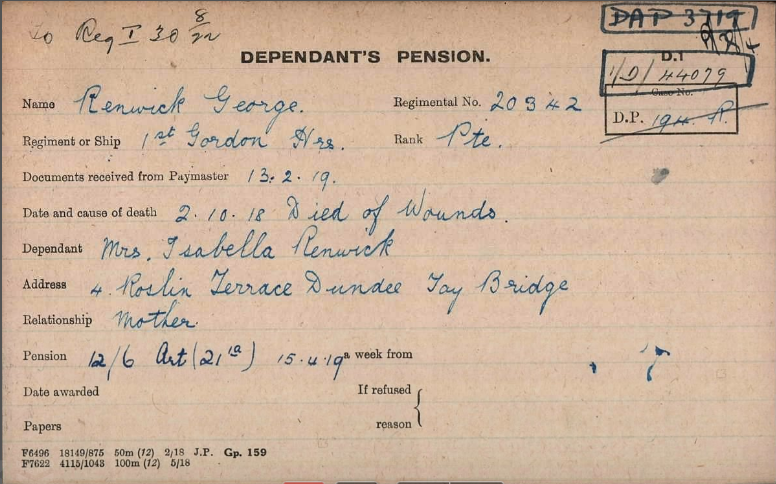 to Reg I 30 8/22
DAP 3719
DEPENDANT'S PENSION.
D.1
1/D/44079
Case No.
Name Renwick George. Regimental No. 20342
D.P. 194. R.
Regiment or Ship 1st Gordon Hrs. Rank Pte.
Documents received from Paymaster 13.2.19.
Date and cause of death 2.10.18 Died of Wounds.
Dependant Mrs. Isabella Renwick
Address 4. Roslin Terrace Dundee Tay Bridge
Relationship Mother.
Pension 12/6 Art (21 a) 15.4.19 a week from
Date awarded If refused
Papers reason
F6496 18149/875 50m (12) 2/18 J.P. Gp. 159
F7622 4115/1043 100m (12) 5/18